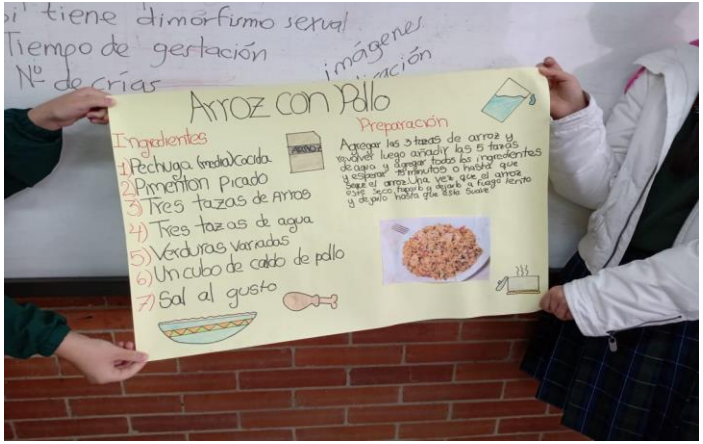 si tiene dimorfismo sexual
Tiempo de gestación
Nº de crías
imágenes
Arroz con Pollo
Ingredientes
1) Pechuga (media) Cocida
2) Pimenton Picado
3) Tres tazas de Arros
4) Tres tazas de agua
5) Verduras variadas
6) Un cubo de caldo de pollo
7) Sal al gusto
ARROZ
Preparación
Agregar las 3 tazas de arroz y
revolver luego añadir las 5 tazas
de agua y agregar todos los ingredientes
y esperar 15 minutos o hasta que
seque el arroz. Una vez que el arroz
este seco taparlo y dejarlo a fuego lento
y dejarlo hasta que este suave